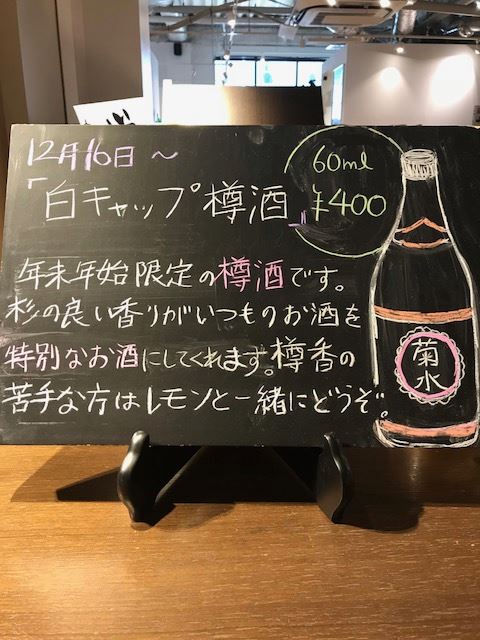 12月16日～
「白キャップ樽酒」
60ml
¥400
年末年始限定の樽酒です。
杉の良い香りがいつものお酒を
特別なお酒にしてくれます。樽香の
苦手な方はレモンと一緒にどうぞ。
菊水